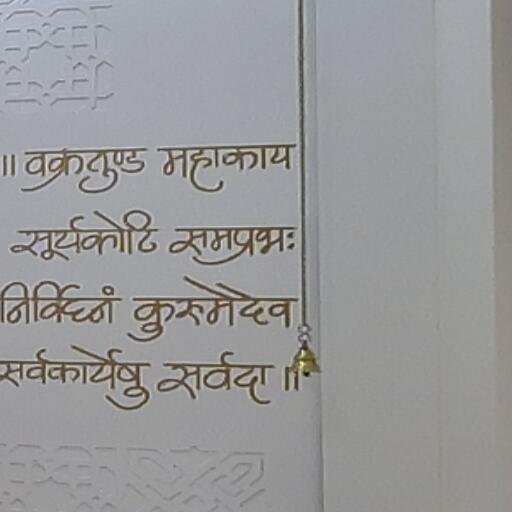 ॥ वक्रतुण्ड महाकाय
सूर्यकोटि समप्रभः
निर्विघ्नं कुरुमेदेव
सर्वकार्येषु सर्वदा ॥